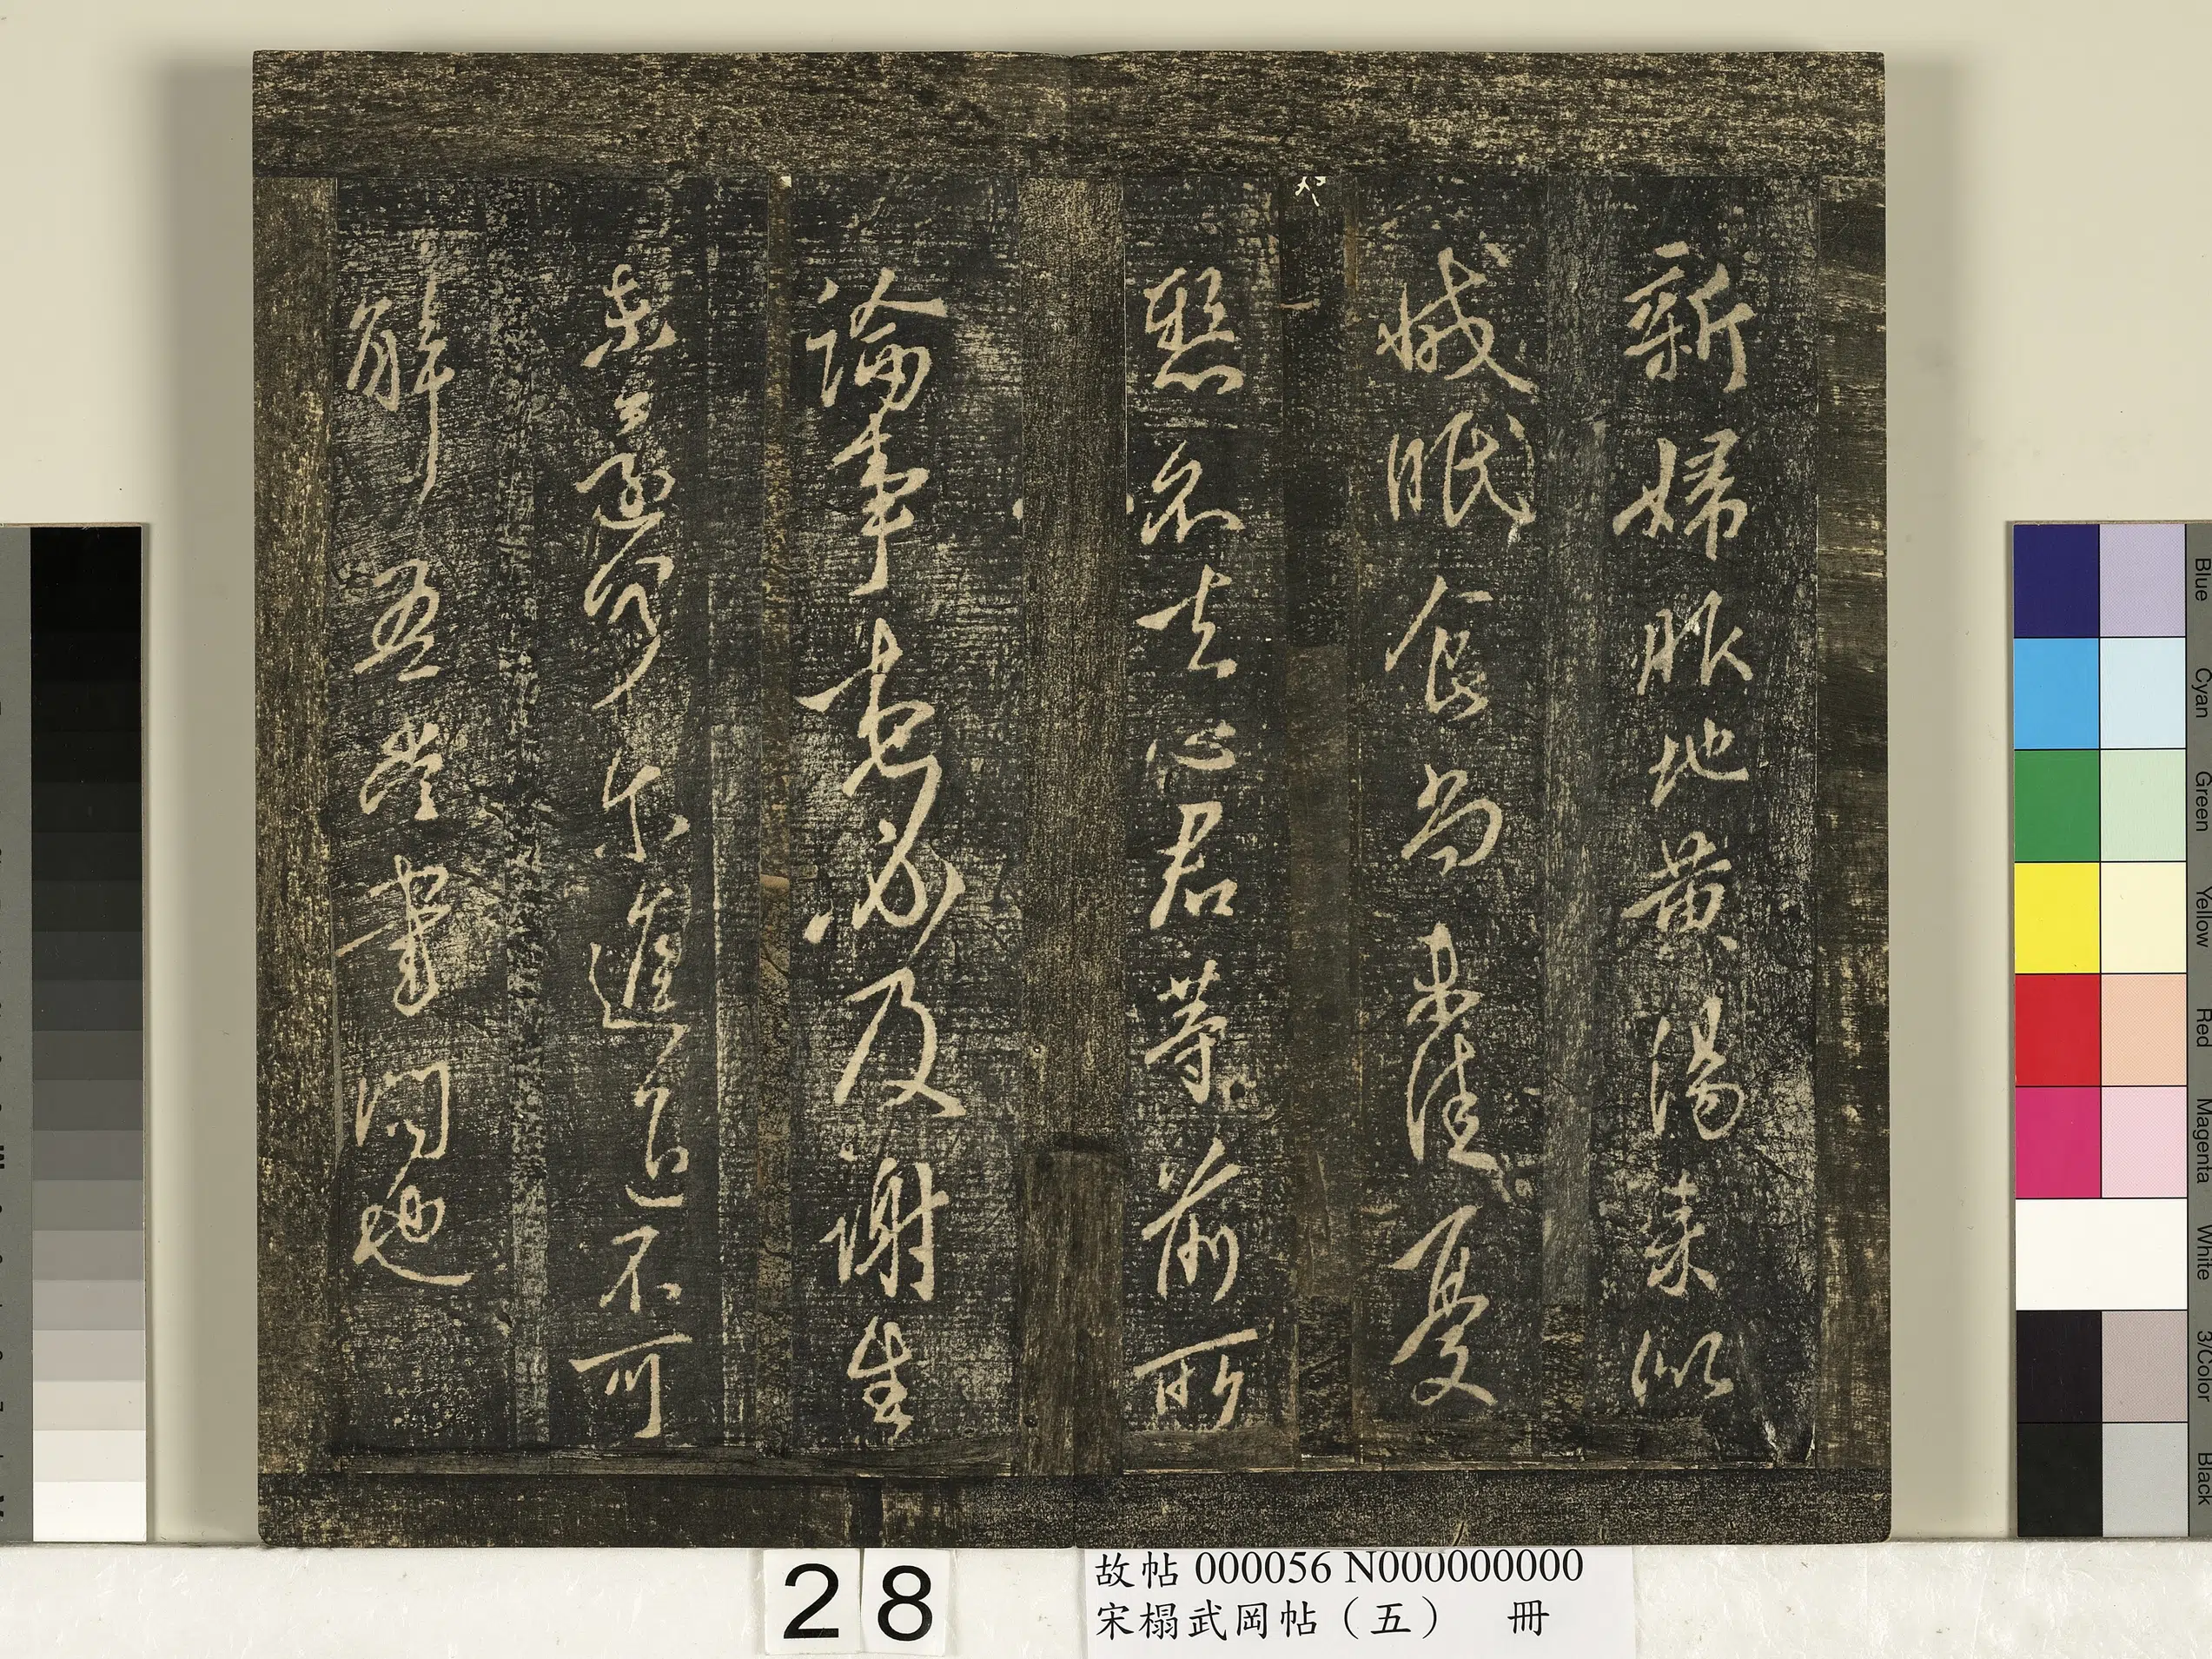 新婦服地黃湯來似
減眠食尚未佳憂
懸不去心君等前所
論事想必及謝生
未還何爾進退不可
解吾當書問也
28
故帖 000056 N000000000
宋榻武岡帖（五） 冊
Blue
Cyan
Green
Yellow
Red
Magenta
White
3/Color
Black